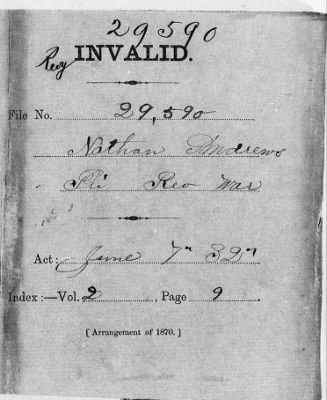 29590
Rev INVALID.
File No. 29,590
Nathan Andrews
Pri Rev War
Act: June 7" 32"
Index:—Vol. 2, Page 9.
[Arrangement of 1870.]